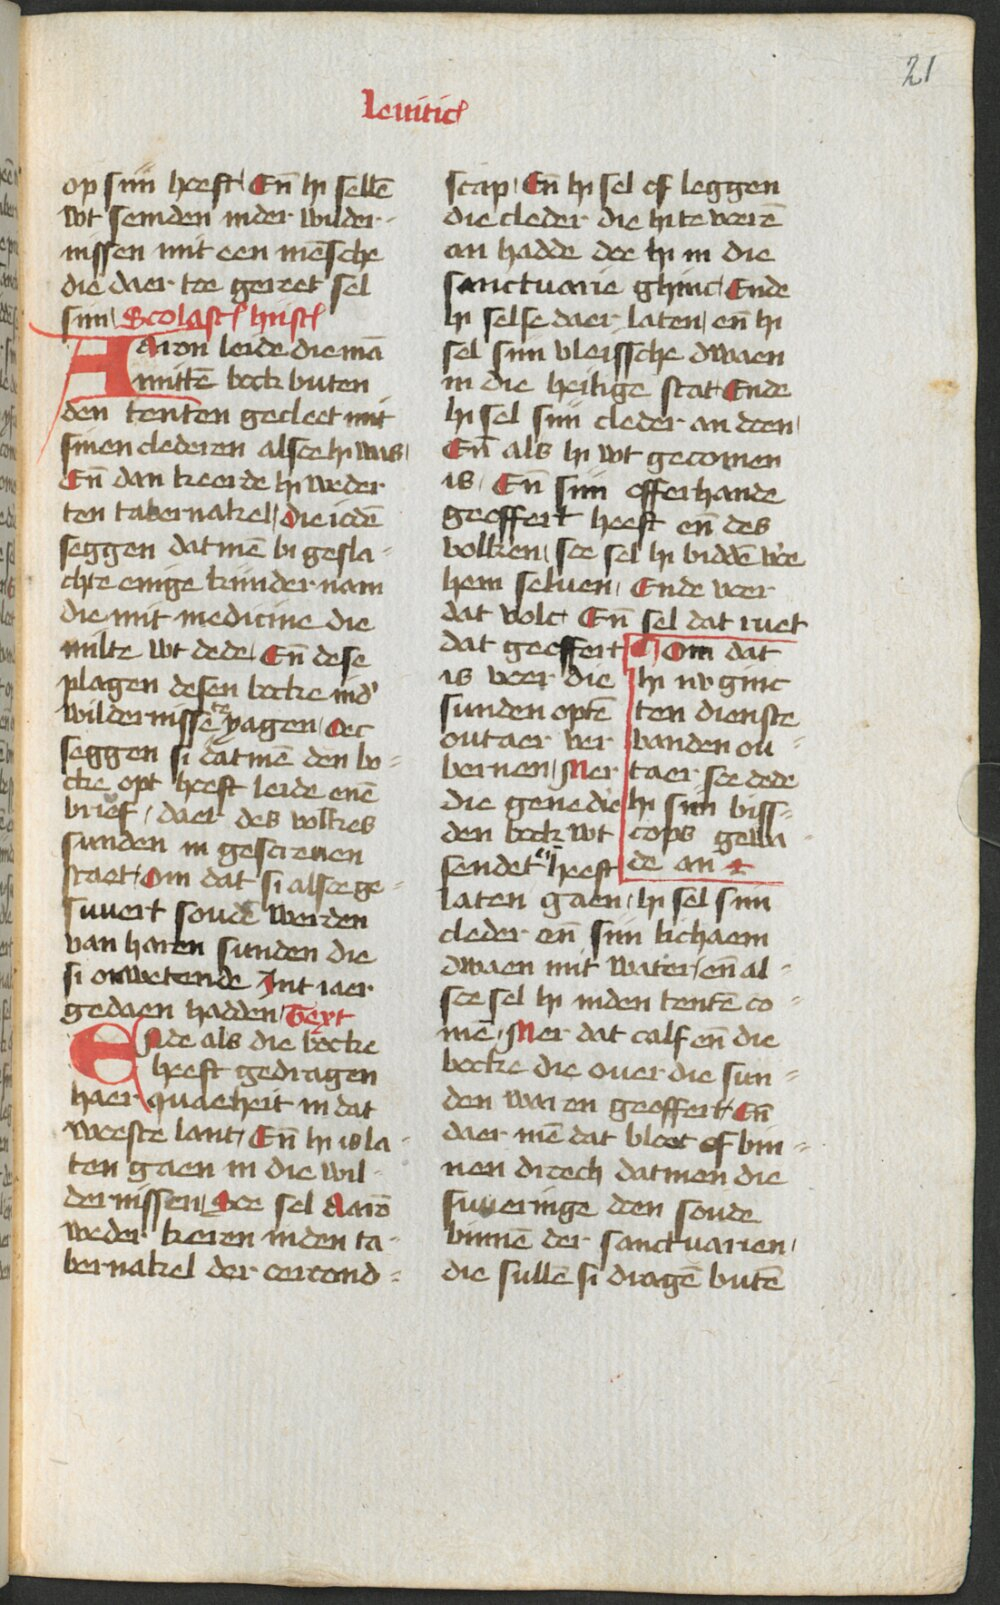 21
Leuitic
op sijn heeft En̄ hi sellē
wt seinden inder wilder-
nissen mit een mēsche
die daer toe gereet sel
sijn Scolast hist
Aaron leide die mā
mittē bock buten
den tenten gecleet mit
sinen clederen alsoe hi was
En̄ dan keerde hi weder
ten tabernakel die iodē
seggen datmē bi gesla-
chte enige kruuder nam
die mit medicine die
milte wt dede En̄ dese
plagen desen bocke ind'
wildernissē te yagen Oec
seggen si datmē den bo-
cke opt heeft leide enē
brief daer des volkes
sunden in gescreuen
staet Om dat si alsoe ge-
suuert soudē werden
van haren sunden die
si onwetende Int iaer
gedaen hadden Text
Ende als die bocke
heeft gedragen
haer quaeheit in dat
woeste lant En̄ hi is la-
ten gaen in die wil-
dernissen Soe sel Aarō
weder keren inden ta-
bernakel der oercond-
scap En̄ hi sel of leggen
die cleder die hi te vorē
an hadde doe hi in die
sanctuarie ghinc Ende
hi selse daer laten en̄ hi
sel sijn vleissche dwaen
in die heilige stat Ende
hi sel sijn cleder an doen
En̄ als hi wt gecomen
is En̄ sijn offerhande
geoffert heeft en̄ des
volken soe sel hi biddē voe
hem seluen Ende voer
dat volc En̄ sel dat ruet
dat geoffert
is voer die
sunden optē
outaer ver
bernen Mer
die gene die
den bock wt
sendet en̄ heeft
Om dat
hi nv ginc
ten dienste
banden ou-
taer soe dede
hi sijn biss-
cops gewa-
de an
laten gaen hi sel sijn
cleder en̄ sijn lichaem
dwaen mit water en̄ al-
soe sel hi inden tentē co-
mē Mer dat calf en̄ die
bocke die ouer die sun-
den waren geoffert En̄
daer mē dat bloet of bin-
nen droech datmen die
suueringe doen soude
binnē der sanctuarien
die sullē si dragē butē